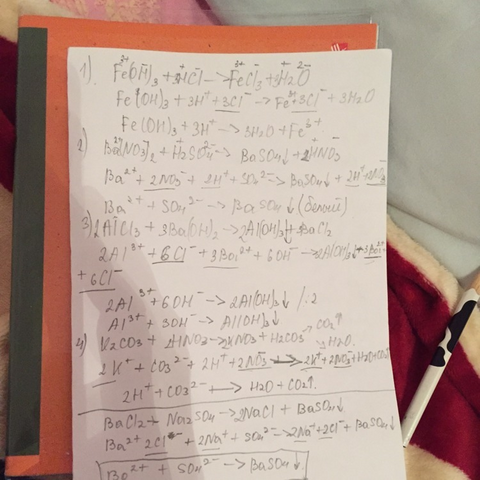 1). Fe(OH)₃ + 3HCl → FeCl₃ + 3H₂O
Fe(OH)₃ + 3H⁺ + 3Cl⁻ → Fe³⁺ + 3Cl⁻ + 3H₂O
Fe(OH)₃ + 3H⁺ → 3H₂O + Fe³⁺
2) Ba(NO₃)₂ + H₂SO₄ → BaSO₄↓ + 2HNO₃
Ba²⁺ + 2NO₃⁻ + 2H⁺ + SO₄²⁻ → BaSO₄↓ + 2H⁺ + 2NO₃⁻
Ba²⁺ + SO₄²⁻ → BaSO₄↓ (белый)
3) 2AlCl₃ + 3Ba(OH)₂ → 2Al(OH)₃↓ + 3BaCl₂
2Al³⁺ + 6Cl⁻ + 3Ba²⁺ + 6OH⁻ → 2Al(OH)₃↓ + 3Ba²⁺
+ 6Cl⁻
2Al³⁺ + 6OH⁻ → 2Al(OH)₃↓ /:2
Al³⁺ + 3OH⁻ → Al(OH)₃↓
4) K₂CO₃ + 2HNO₃ → 2KNO₃ + H₂CO₃ → CO₂↑
H₂O.
2K⁺ + CO₃²⁻ + 2H⁺ + 2NO₃⁻ → 2K⁺ + 2NO₃⁻ + H₂O + CO₂↑
2H⁺ + CO₃²⁻ → H₂O + CO₂↑.
BaCl₂ + Na₂SO₄ → 2NaCl + BaSO₄↓
Ba²⁺ 2Cl⁻ + 2Na⁺ + SO₄²⁻ → 2Na⁺ + 2Cl⁻ + BaSO₄↓
Ba²⁺ + SO₄²⁻ → BaSO₄↓